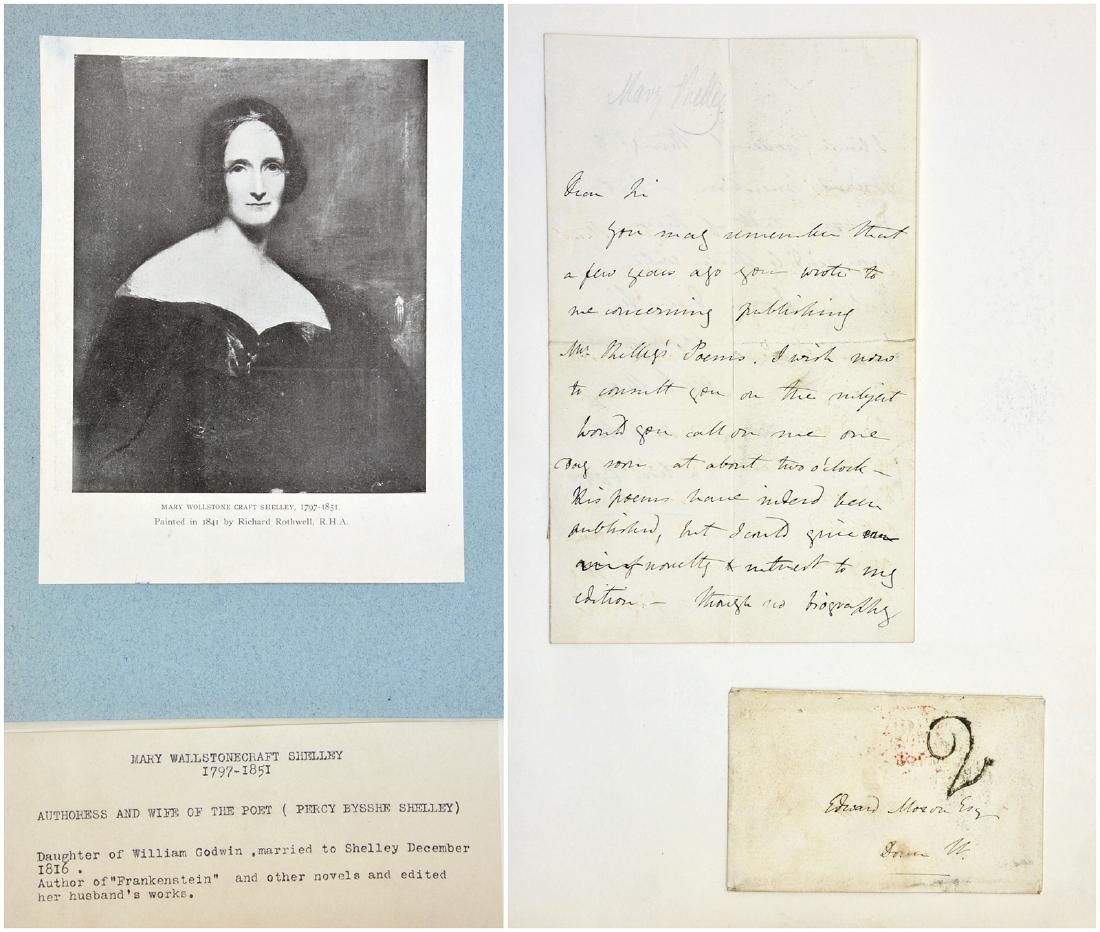 MARY WOLLSTONE CRAFT SHELLEY, 1797-1851.
Painted in 1841 by Richard Rothwell, R.H.A.
MARY WALLSTONECRAFT SHELLEY
1797-1851
AUTHORESS AND WIFE OF THE POET ( PERCY BYSSHE SHELLEY)
Daughter of William Godwin ,married to Shelley December
1816 .
Author of "Frankenstein" and other novels and edited
her husband's works.
Mary Shelley
Dear Sir
You may remember that
a few years ago you wrote to
me concerning publishing
Mr. Shelley's Poems. I wish now
to consult you on the subject
Would you call on me one
Day soon at about two o'clock –
His poems have indeed been
published, but I could give
novelty & interest to my
edition – though no biography
2
Edward Moxon Esq
Dover St.